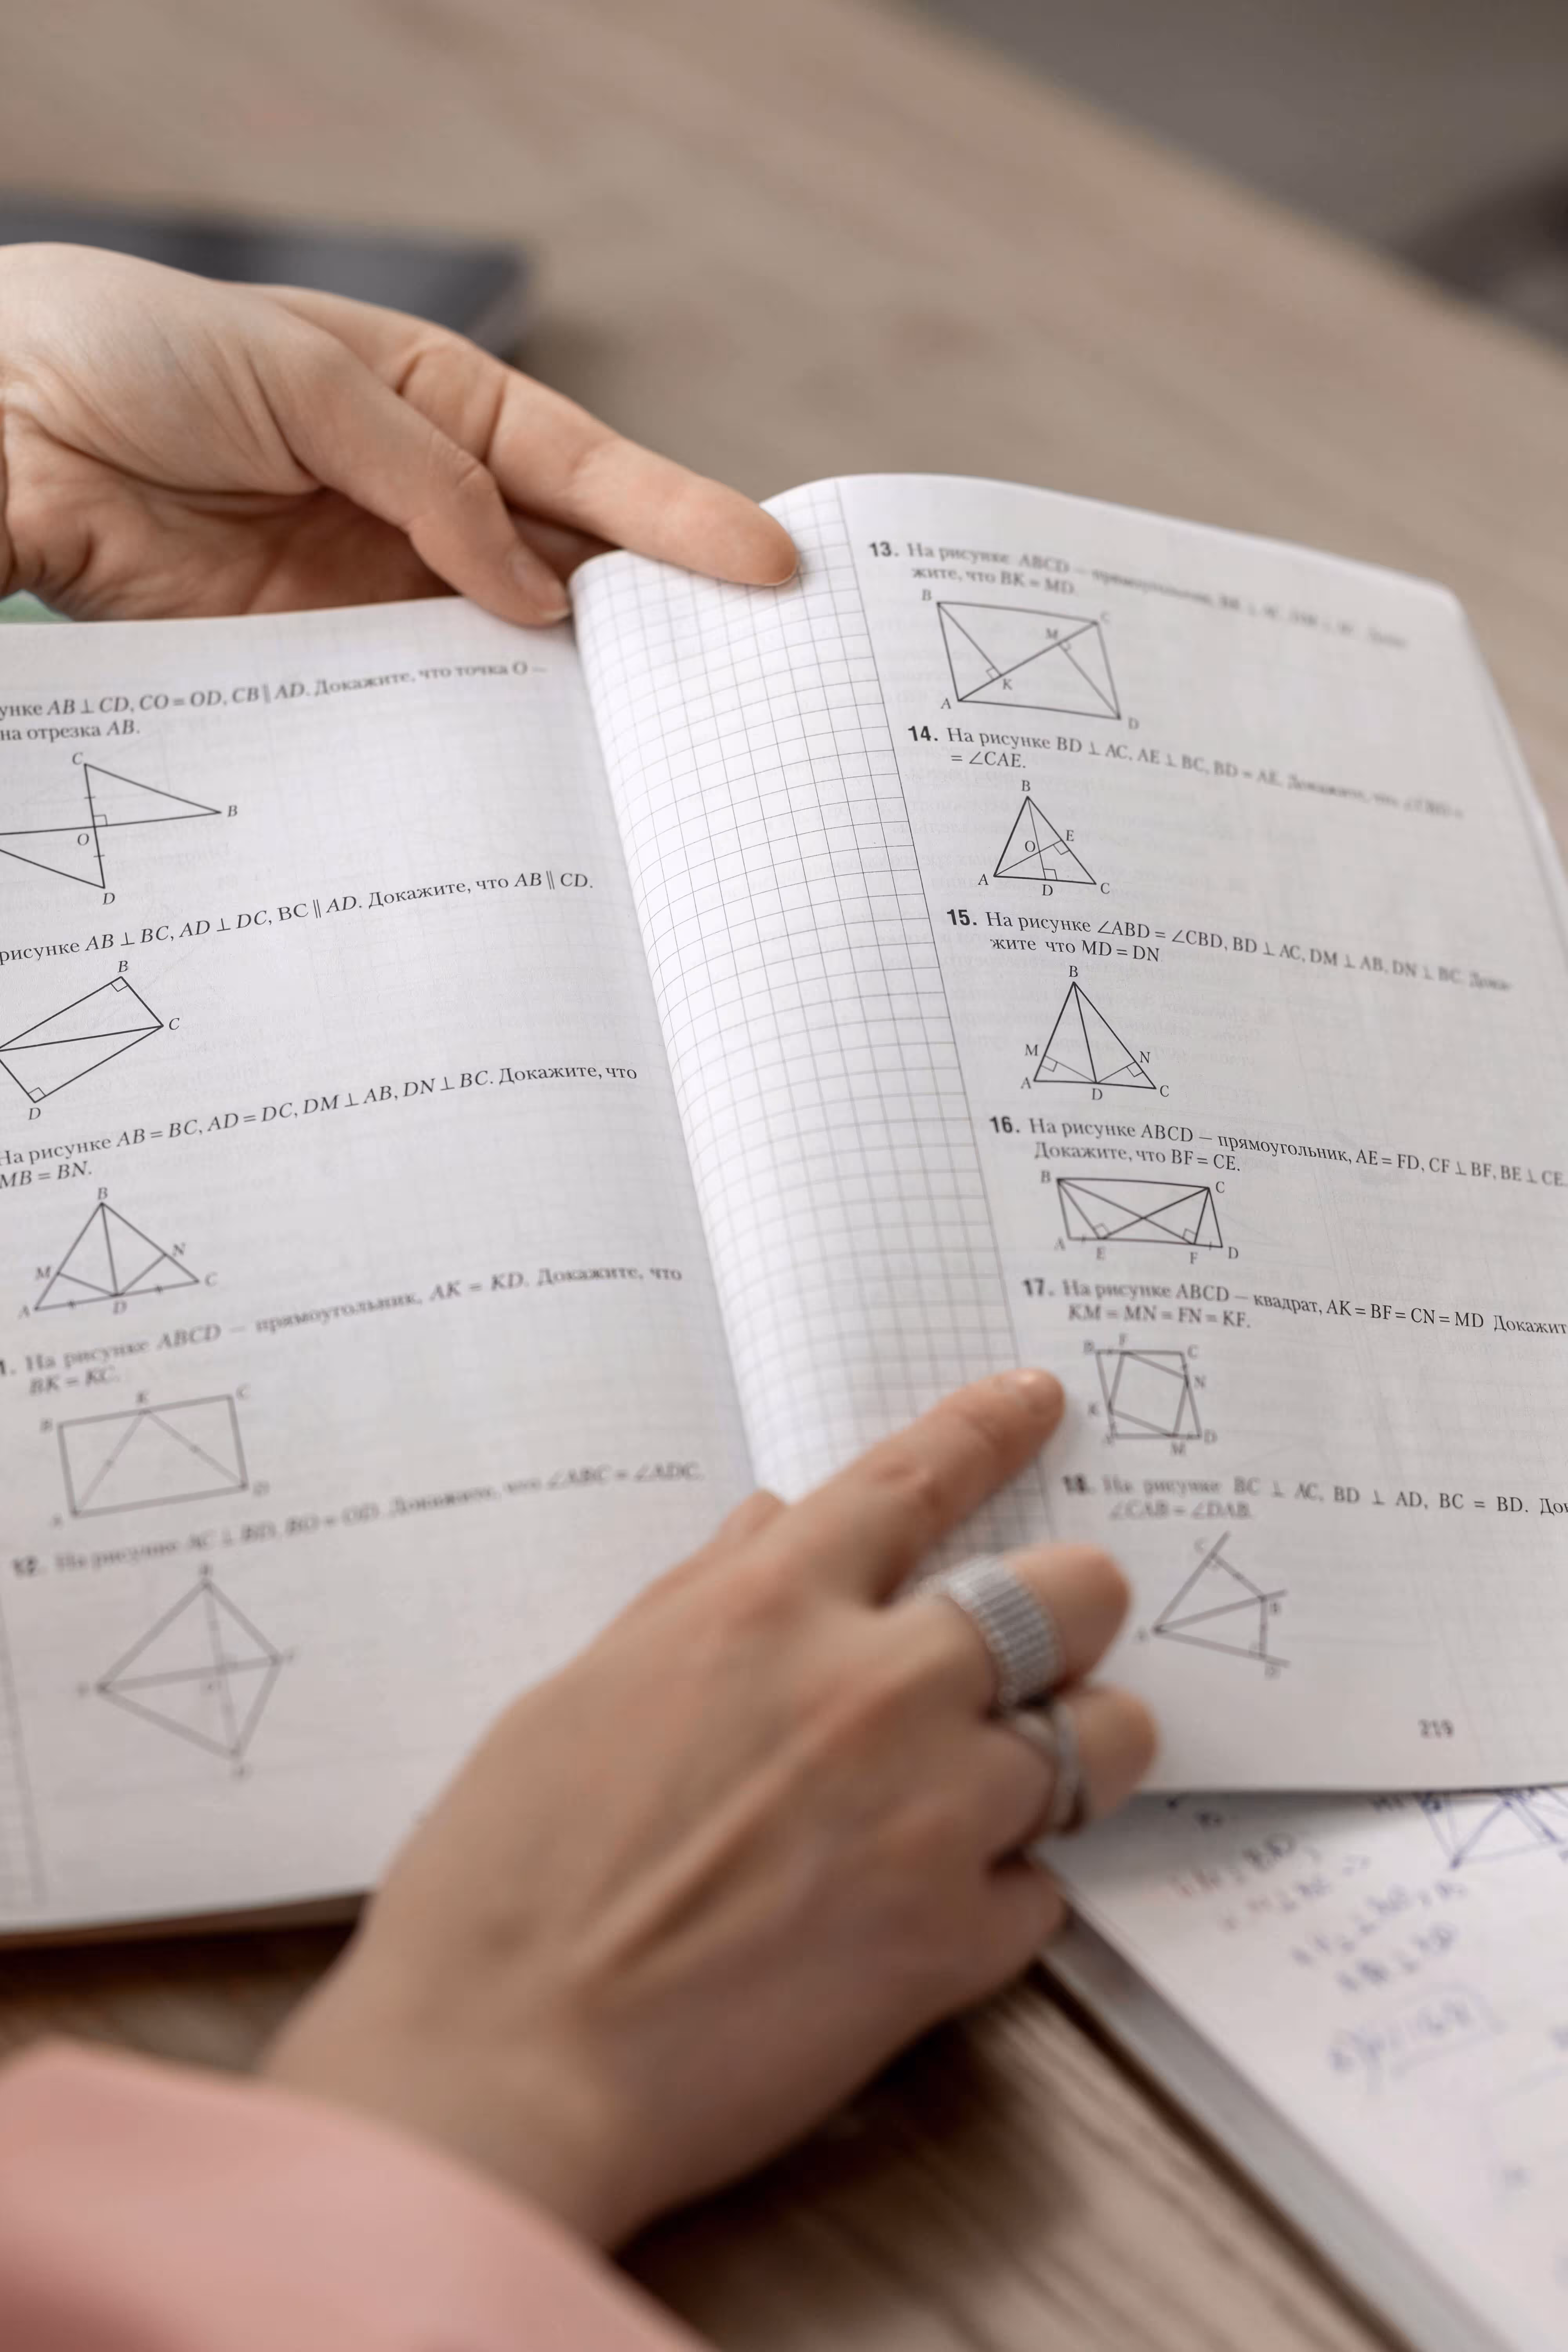 унке AB ⊥ CD, CO = OD, CB ∥ AD. Докажите, что точка O —
на отрезка AB.
C
B
O
D
рисунке AB ⊥ BC, AD ⊥ DC, BC ∥ AD. Докажите, что AB ∥ CD.
B
C
D
На рисунке AB = BC, AD = DC, DM ⊥ AB, DN ⊥ BC. Докажите, что
MB = BN.
B
M N
A D C
1. На рисунке ABCD — прямоугольник, AK = KD. Докажите, что
BK = KC.
K C
B
D
A
12. На рисунке AC ⊥ BD, BO = OD. Докажите, что ∠ABC = ∠ADC.
13. На рисунке ABCD — прямоугольник,
жите, что BK = MD.
B C
M
K
A D
14. На рисунке BD ⊥ AC, AE ⊥ BC, BD = AE. Докажите, что ∠CBD =
= ∠CAE.
B
O E
A D C
15. На рисунке ∠ABD = ∠CBD, BD ⊥ AC, DM ⊥ AB, DN ⊥ BC. Дока-
жите что MD = DN
B
M N
A D C
16. На рисунке ABCD — прямоугольник, AE = FD, CF ⊥ BF, BE ⊥ CE.
Докажите, что BF = CE.
B C
A E F D
17. На рисунке ABCD — квадрат, AK = BF = CN = MD Докажит
KM = MN = FN = KF.
B F C
N
K
A M D
18. На рисунке BC ⊥ AC, BD ⊥ AD, BC = BD. Док
∠CAB = ∠DAB.
C
B
A
D
219